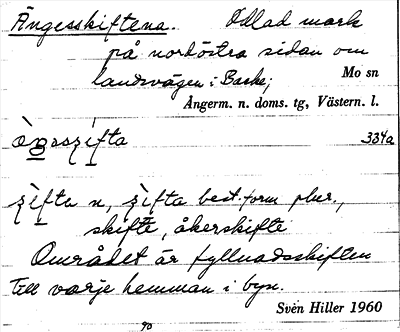 Ängesskiftena. Odlad mark
på nordöstra sidan om
landsvägen i Baske; Mo sn
Ångerm. n. doms. tg, Västern. l.
334a
n, best. form plur.,
skifte, åkerskifte
Området är fyllnadsskiften
till varje hemman i byn.
Sven Hiller 1960